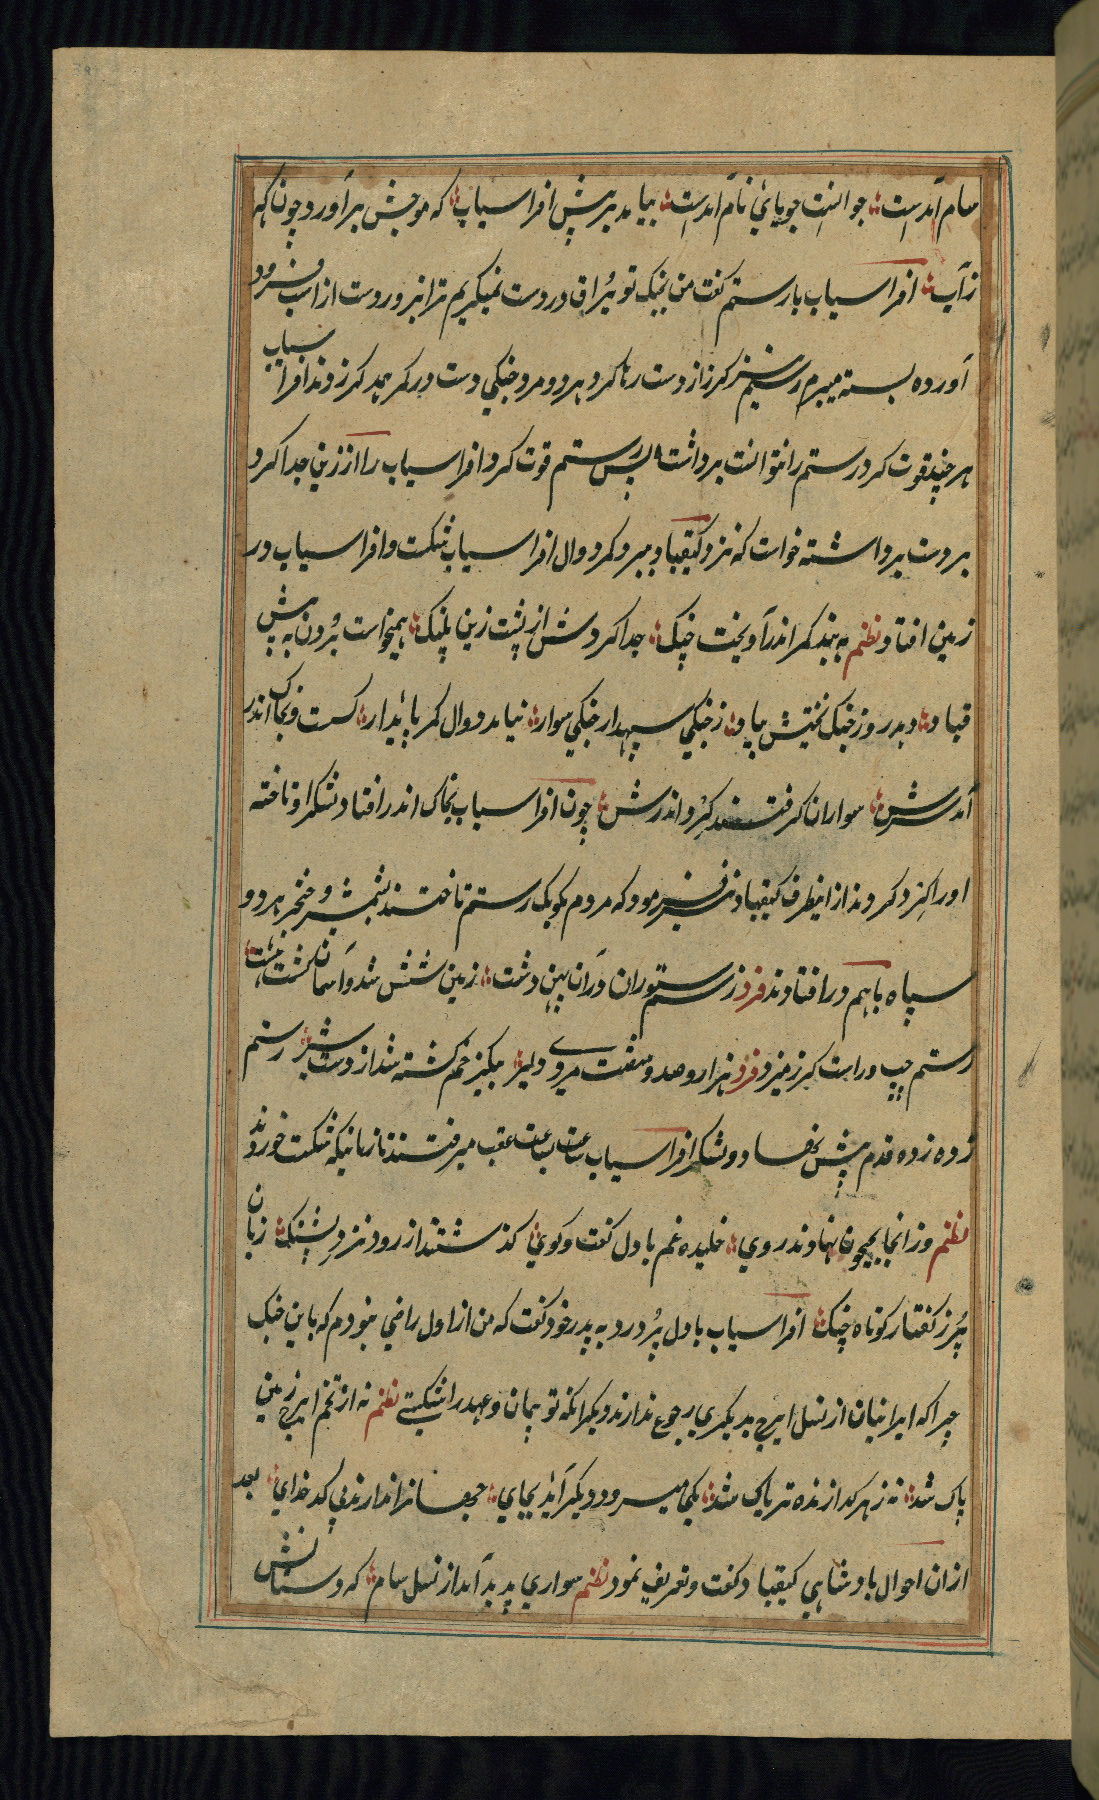 سام آمدست جوانست جویای نام آمدست بیامد بر پیش افراسیاب که موجش برآورد چون که
زآب افراسیاب با رستم گفت من بجنگ تو یراق در دست نمیگیرم ترا بزور دست از اسب فرود
آورده بسته میبرم رستم نیز گرز از دست رها کرد هر دو مرد جنگی دست در کمر همدیگر زدند افراسیاب
هر چند قوت کرد رستم را نتوانست برداشت پس رستم قوت کرد افراسیاب را از زین جدا کرد
بر دست برداشته خواست که نزد کیقباد ببرد کمر دوال افراسیاب شکست و افراسیاب در
زمین افتاد نظم به بند کمر اندر آویخت چنگ جدا کردش از پشت زین پلنگ همیخواست بردن به پیش
قباد دهد روز جنگ نخستینش یاد ز جنگی سپهدار جنگی سوار نیامد دوال کمر پایدار گسست و بخاک اندر
آمد سرش سواران گرفتند گرد اندرش چون افراسیاب بخاک اندر افتاد لشکر او تاخته
او را گرد کردند از اینطرف کیقباد نیز فرمود که مردم کومک رستم تاختند بشمشیر و خنجر هر دو
سپاه باهم در افتادند فرد ز سم ستوران در آن پهن دشت زمین شش شد و آسمان گشت هشت
رستم چپ و راست گرز میزد فرد هزار و صد و شصت مرد دلیر بیک زخم کشته شد از دست شیر رستم
زده زده قدم پیش نهاد و لشکر افراسیاب ساعت بساعت عقب میرفتند تا زمانیکه شکست خوردند
نظم وز آنجا بجیحون نهادند روی خلیده غم با دل گفت و گوی گذشتند از رود نزد پشنگ زبان
پر ز گفتار کوتاه چنگ افراسیاب با دل پر درد به پدر خود گفت که من از اول راضی نبودم که باین جنگ
چرا که ایرانیان از نسل ایرج بدیگری رجوع ندارند دیگر آنکه تو پیمان و عهد را شکستی نظم نه از تخم ایرج زمین
پاک شد نه زهر گزاینده تریاک شد یکی میرود دیگر آید بجای جهانرا ندارند بی کدخدای بعد
از ان احوال بادشاهی کیقباد گفت و تعریف نمود نظم سواری پدید آمد از نسل سام که دستانش